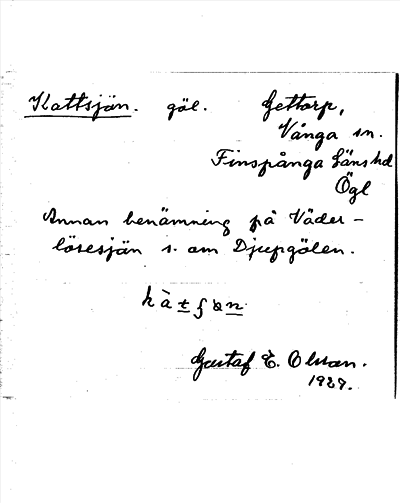 Kattsjön. göl. Gettorp,
Vånga sn.
Finspånga läns hd
Ögl
Annan benämning på Väder-
lösesjön s. om Djupgölen.
Gustaf E. Olsson.
1929.